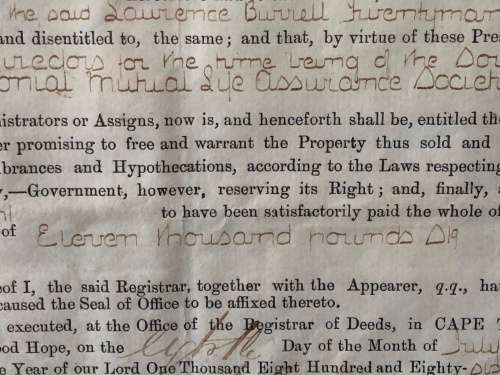 the said Laurence Burrell Twentyman
and disentitled to, the same; and that, by virtue of these Pre
rectors for the time being of the
onial Mutual Life Assurance Societ
nistrators or Assigns, now is, and henceforth shall be, entitled the
er promising to free and warrant the Property thus sold and
brances and Hypothecations, according to the Laws respecting
y,—Government, however, reserving its Right; and, finally,
to have been satisfactorily paid the whole of
of Eleven thousand pounds Stg
of I, the said Registrar, together with the Appearer, q.q., ha
caused the Seal of Office to be affixed thereto.
executed, at the Office of the Registrar of Deeds, in CAPE T
ood Hope, on the Day of the Month of July
e Year of our Lord One Thousand Eight Hundred and Eighty-